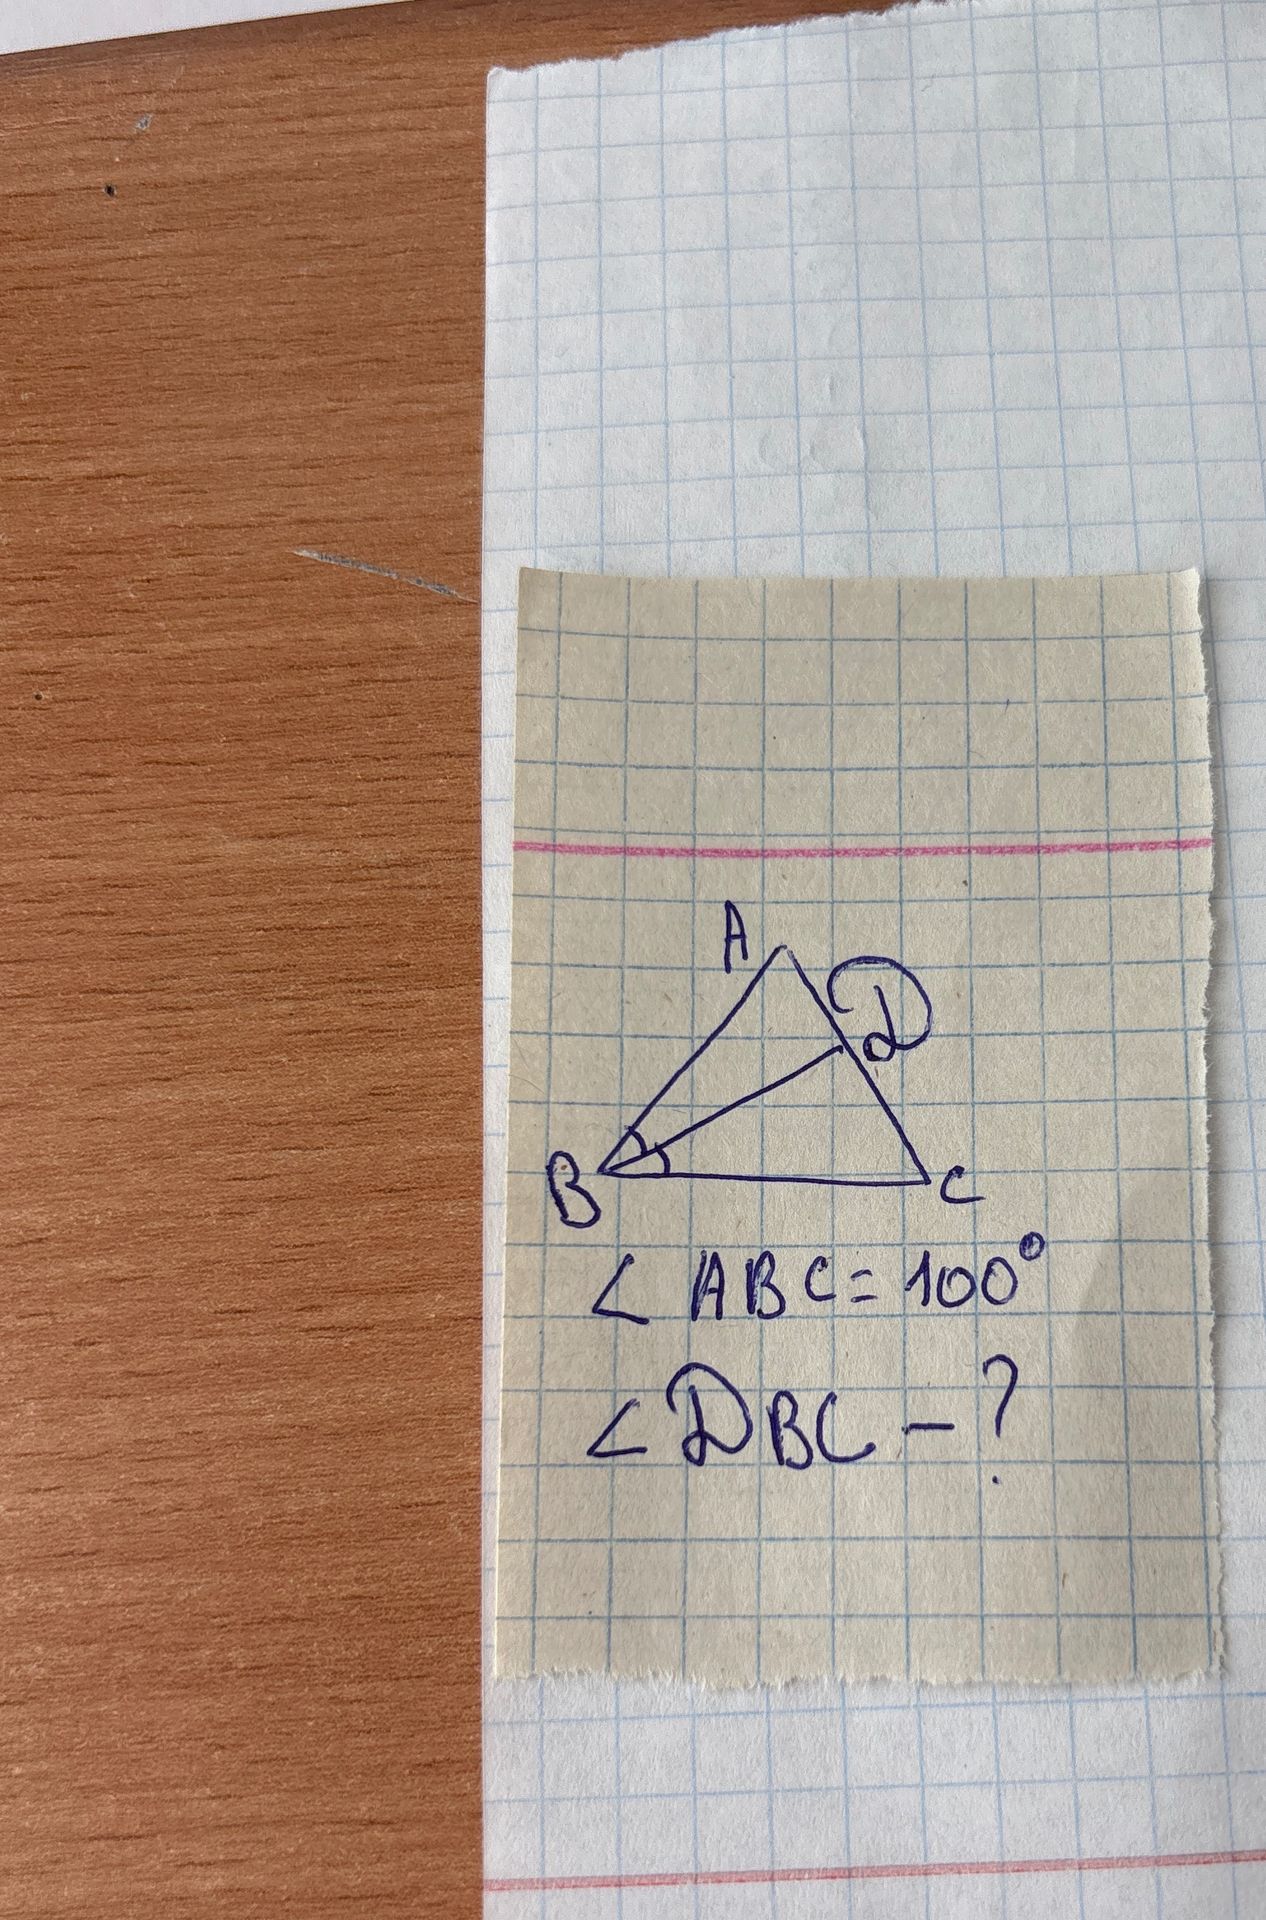 A
D
B
C
∠ ABC = 100°
∠ DBC – ?